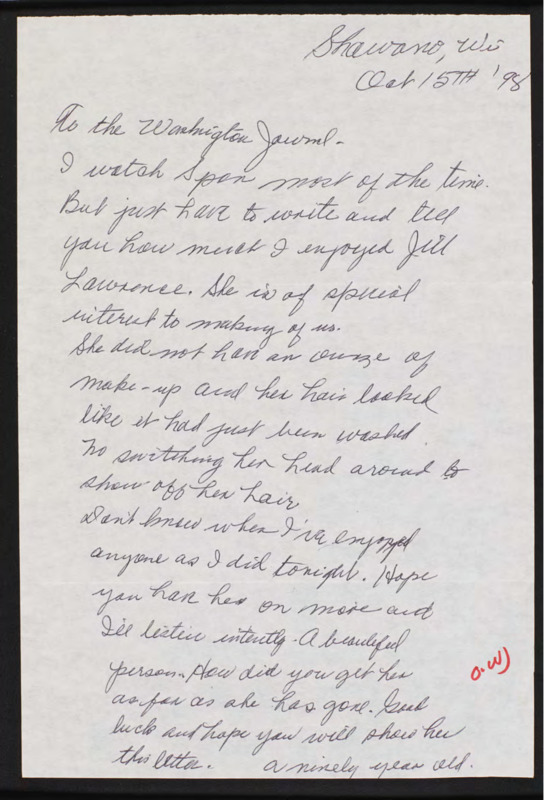 Shawano, Wi
Oct 15TH '98
To the Washington Journal-
I watch Span most of the time.
But just have to write and tell
you how much I enjoyed Jill
Lawrence. She is of special
interest to making of us.
She did not have an ounze of
make-up and her hair looked
like it had just been washed.
No switching her head around to
show off her hair
Don't know when I've enjoyed
anyone as I did tonight. Hope
you have her on more and
I'll listen intently. A beautiful
person. How did you get her
as far as she has gone. Good
luck and hope you will show her
this letter. a ninety year old.
O.WJ